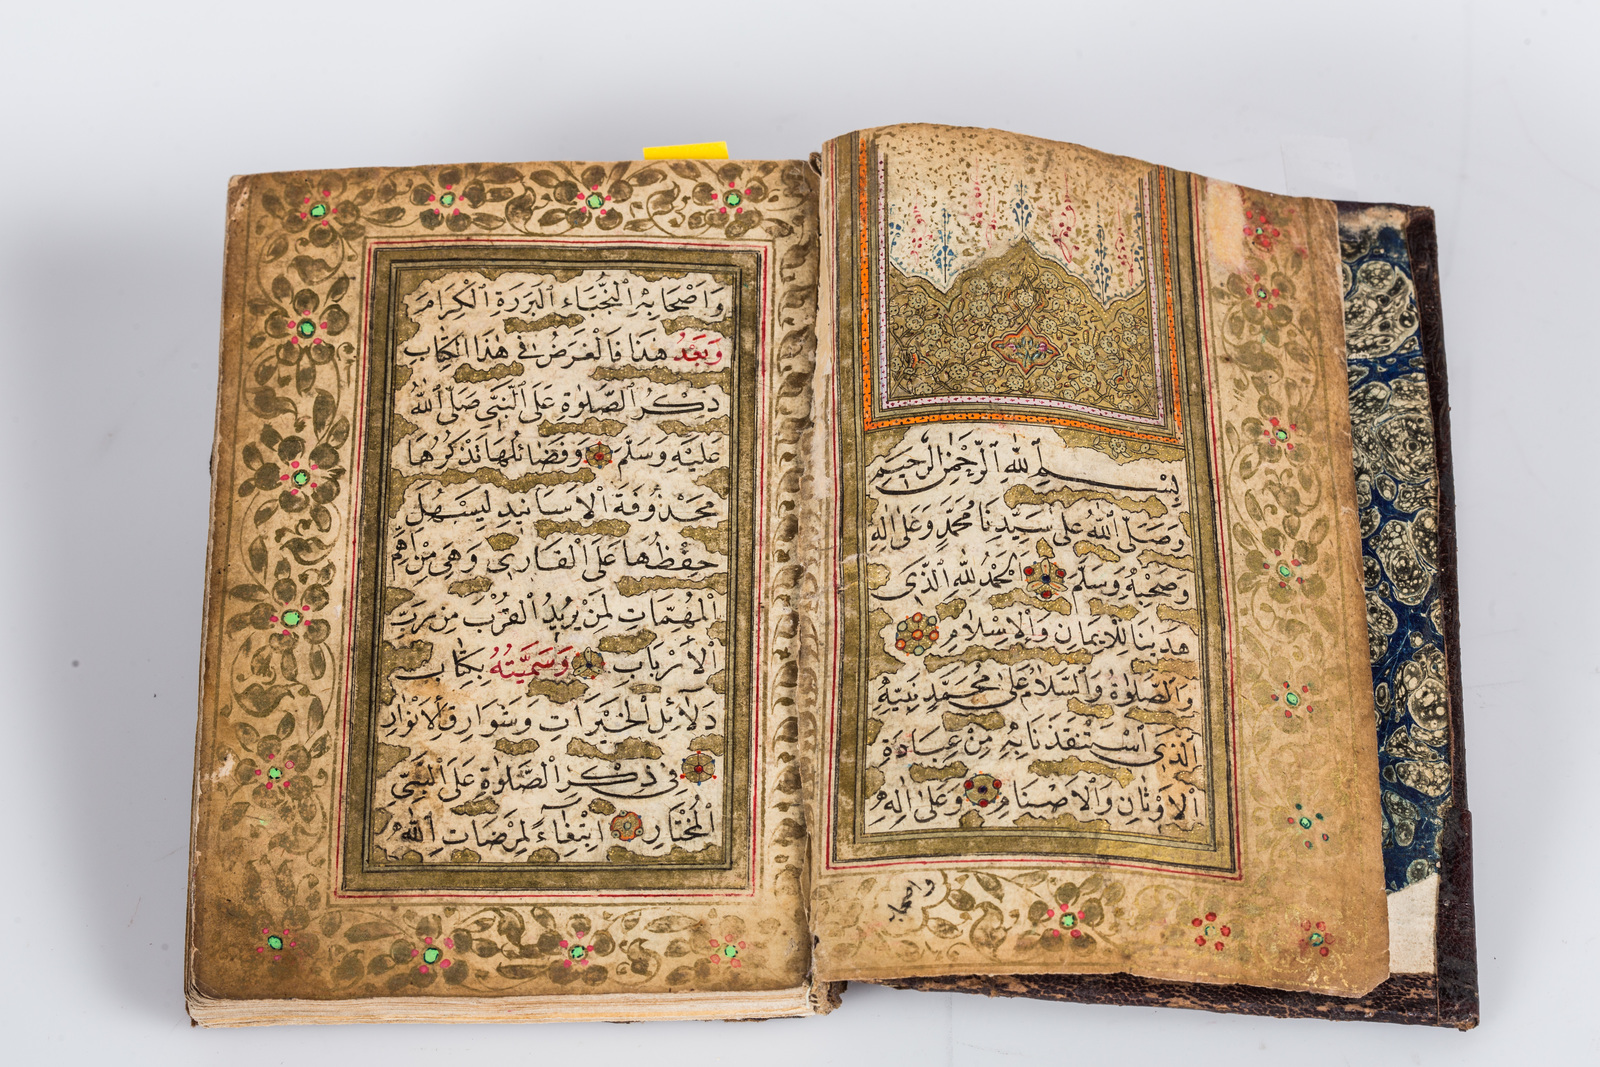 بِسْمِ اللهِ الرَّحْمٰنِ الرَّحِيمِ
وَصَلَّى اللهُ عَلٰى سَيِّدِنَا مُحَمَّدٍ وَعَلٰى اٰلِهِ
وَصَحْبِهِ وَسَلَّمَ الْحَمْدُ لِلّٰهِ الَّذِى
هَدٰينَا لِلْاِيمَانِ وَالْاِسْلَامِ
وَالصَّلٰوةُ وَالسَّلَامُ عَلٰى مُحَمَّدٍ نَبِيِّهِ
الَّذِى اسْتَنْقَذَنَا بِهِ مِنْ عِبَادَةِ
الْاَوْثَانِ وَالْاَصْنَامِ وَعَلٰى اٰلِهِ
واصحابه
وَاَصْحَابِهِ النُّجَبَاءِ الْبَرَرَةِ الْكِرَامِ
وَبَعْدُ هٰذَا فَالْغَرَضُ فِى هٰذَا الْكِتَابِ
ذِكْرُ الصَّلٰوةِ عَلَى النَّبِىِّ صَلَّى اللهُ
عَلَيْهِ وَسَلَّمَ وَفَضَائِلُهَا نَذْكُرُهَا
مَحْذُوفَةَ الْاَسَانِيدِ لِيَسْهُلَ
حِفْظُهَا عَلَى الْقَارِى وَهِىَ مِنْ اَهَمِّ
الْمُهِمَّاتِ لِمَنْ يُرِيدُ الْقُرْبَ مِنْ رَبِّ
الْاَرْبَابِ وَسَمَّيْتُهُ بِكِتَابِ
دَلَائِلِ الْخَيْرَاتِ وَشَوَارِقِ الْاَنْوَارِ
فِى ذِكْرِ الصَّلٰوةِ عَلَى النَّبِىِّ
الْمُخْتَارِ ابْتِغَاءً لِمَرْضَاتِ اللهِ